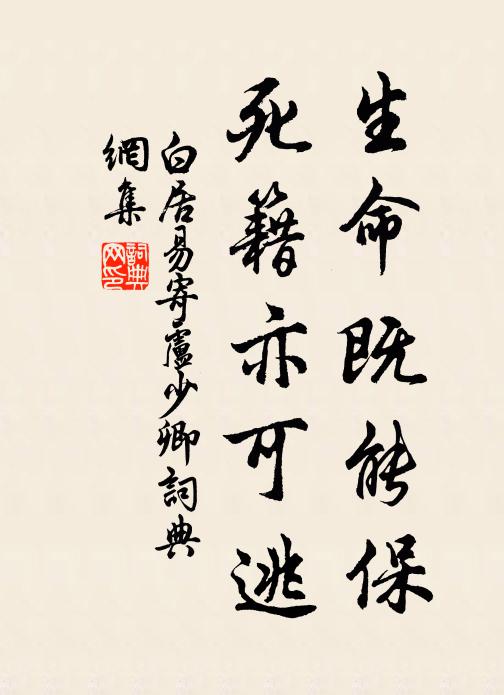 生命既能保
死籍亦可逃
白居易寄盧少卿詞典
網集
詞典
网印